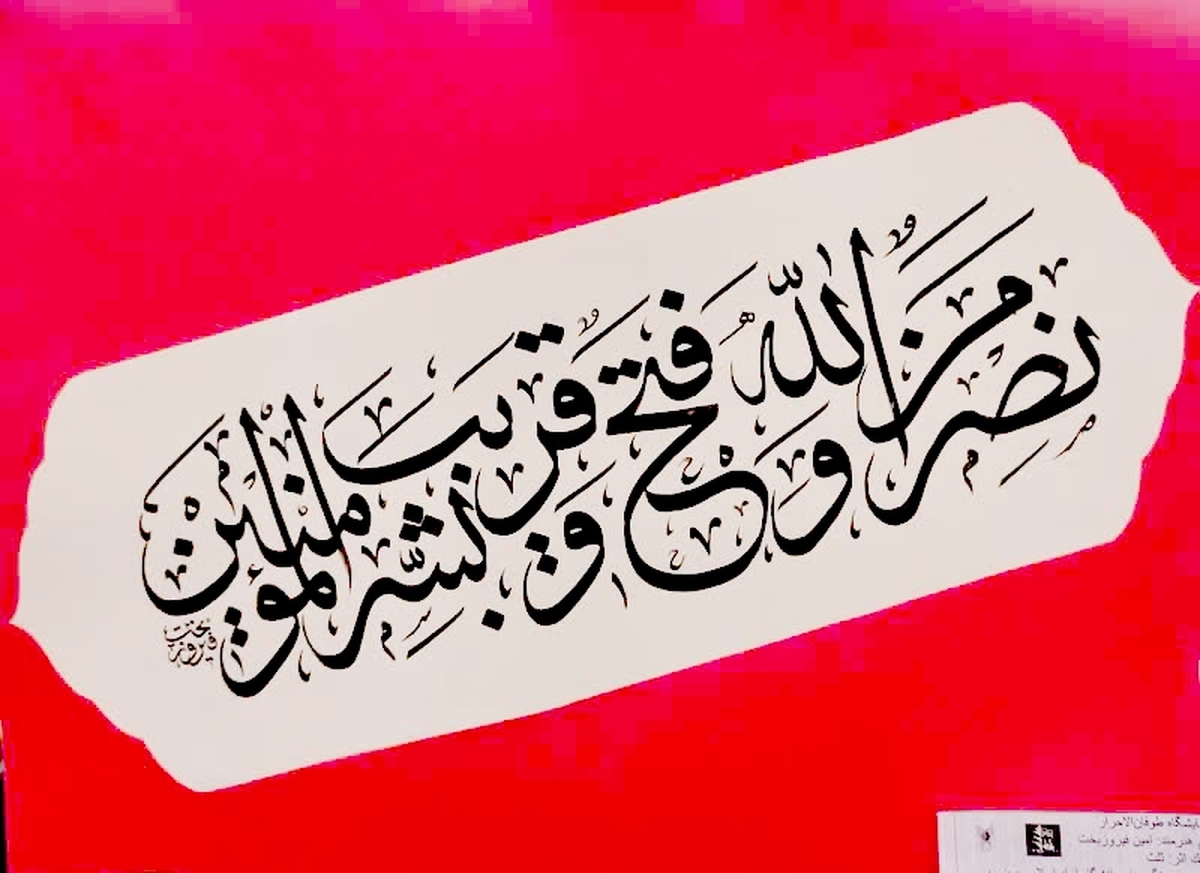 نصر من الله و فتح قریب و بشر المؤمنین
فیروزبخت
نمایشگاه طوفان‌الاحرار
هنرمند: امین فیروزبخت
اثر: ثلث